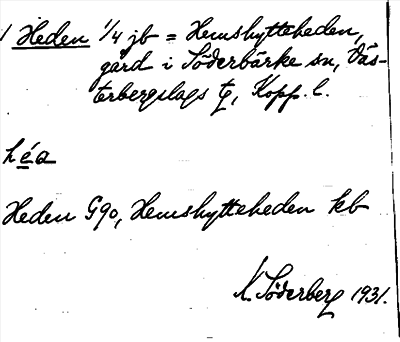 1 Heden 1/4 jb = Hemshytteheden,
gård i Söderbärke sn, Väs-
terbergslags tg, Kopp. l.
héa
Heden G90, Hemshytteheden kb
K. Söderberg 1931.